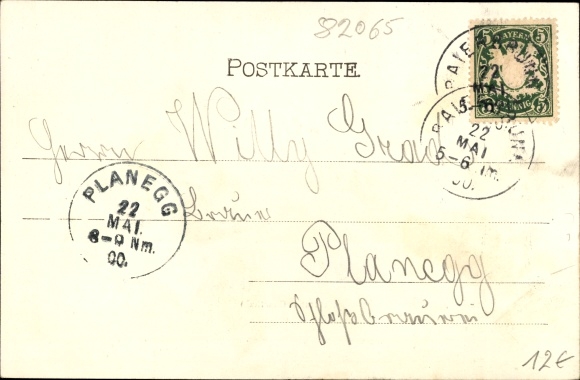 82065
BAYERN
5 5
PFENNIG
BAIERBRUNN
22
MAI
5-6 Nm.
00.
POSTKARTE.
Herrn Willy Graf
PLANEGG
22
MAI.
8-9 Nm.
00.
Planegg
Schloßbrauerei
12€